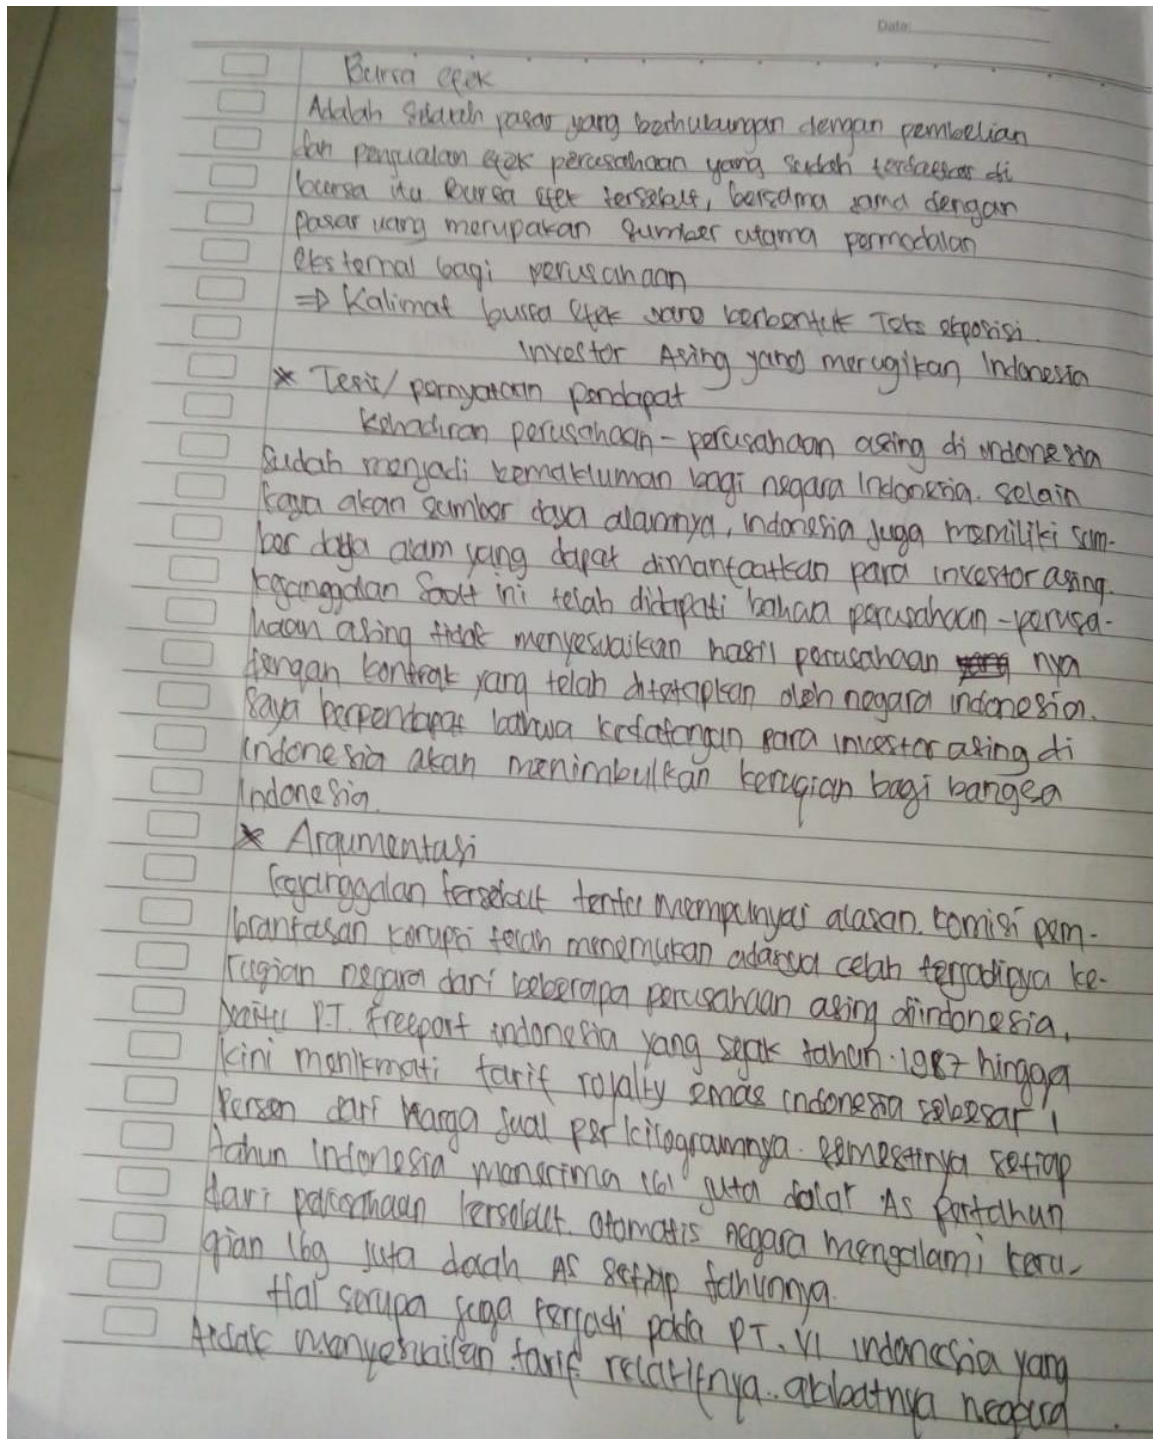 Date:
Bursa efek
Adalah sebuah pasar yang berhubungan dengan pembelian
dan penjualan efek perusahaan yang sudah terdaftar di
bursa itu Bursa efek tersebut, bersama sama dengan
pasar uang merupakan sumber utama permodalan
eksternal bagi perusahaan
⇒ Kalimat bursa efek yang berbentuk Teks eksposisi.
Investor Asing yang merugikan Indonesia
* Tesis/pernyataan pendapat
Kehadiran perusahaan-perusahaan asing di indonesia
sudah menjadi kemakluman bagi negara Indonesia. selain
kaya akan sumber daya alamnya, indonesia juga memiliki sum-
ber daya alam yang dapat dimanfaatkan para investor asing.
kejanggalan Saat ini telah didapati bahwa perusahaan-perusa-
haan asing tidak menyesuaikan hasil perusahaan nya
dengan kontrak yang telah ditetapkan oleh negara indonesia.
saya berpendapat bahwa kedatangan para investor asing di
indonesia akan menimbulkan kerugian bagi bangsa
Indonesia.
* Argumentasi
kejanggalan tersebut tentu mempunyai alasan. komisi pem-
brantasan korupsi telah menemukan adanya celah terjadinya ke-
rugian negara dari beberapa perusahaan asing diindonesia,
yaitu P.T. freeport indonesia yang sejak tahun 1987 hingga
kini menikmati tarif royalty emas indonesia sebesar 1
Persen dari Harga jual per kilogramnya. semestinya setiap
tahun Indonesia menerima 161 juta dolar AS pertahun
dari perusahaan tersebut. otomatis negara mengalami keru-
gian 169 juta AS setiap tahunnya.
Hal serupa juga terjadi pada PT. VI indonesia yang
tidak menyesuaikan tarif relatifnya.. akibatnya negara